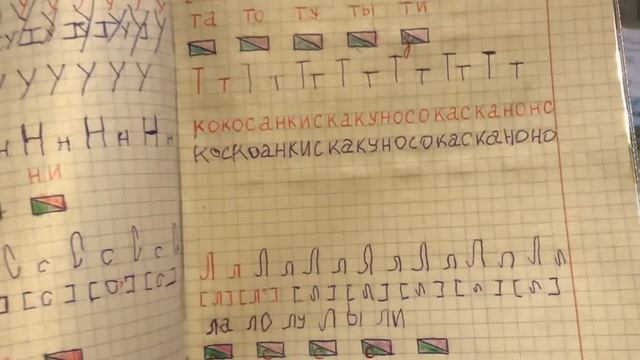 У У У У У
Н н Н н Н н
ни
С с С с С с
[с] [с'] [с]
та то ту ты ти
Т т Т т Т т Т т Т т Т т Т т
кокосанкискакуносокасканонс
коскоанкискакуносокасканоно
Л л Л л Л л Л л Л л Л л Л л
[л] [л'] [л] [л] [л] [л] [л]
ла ло лу лы ли